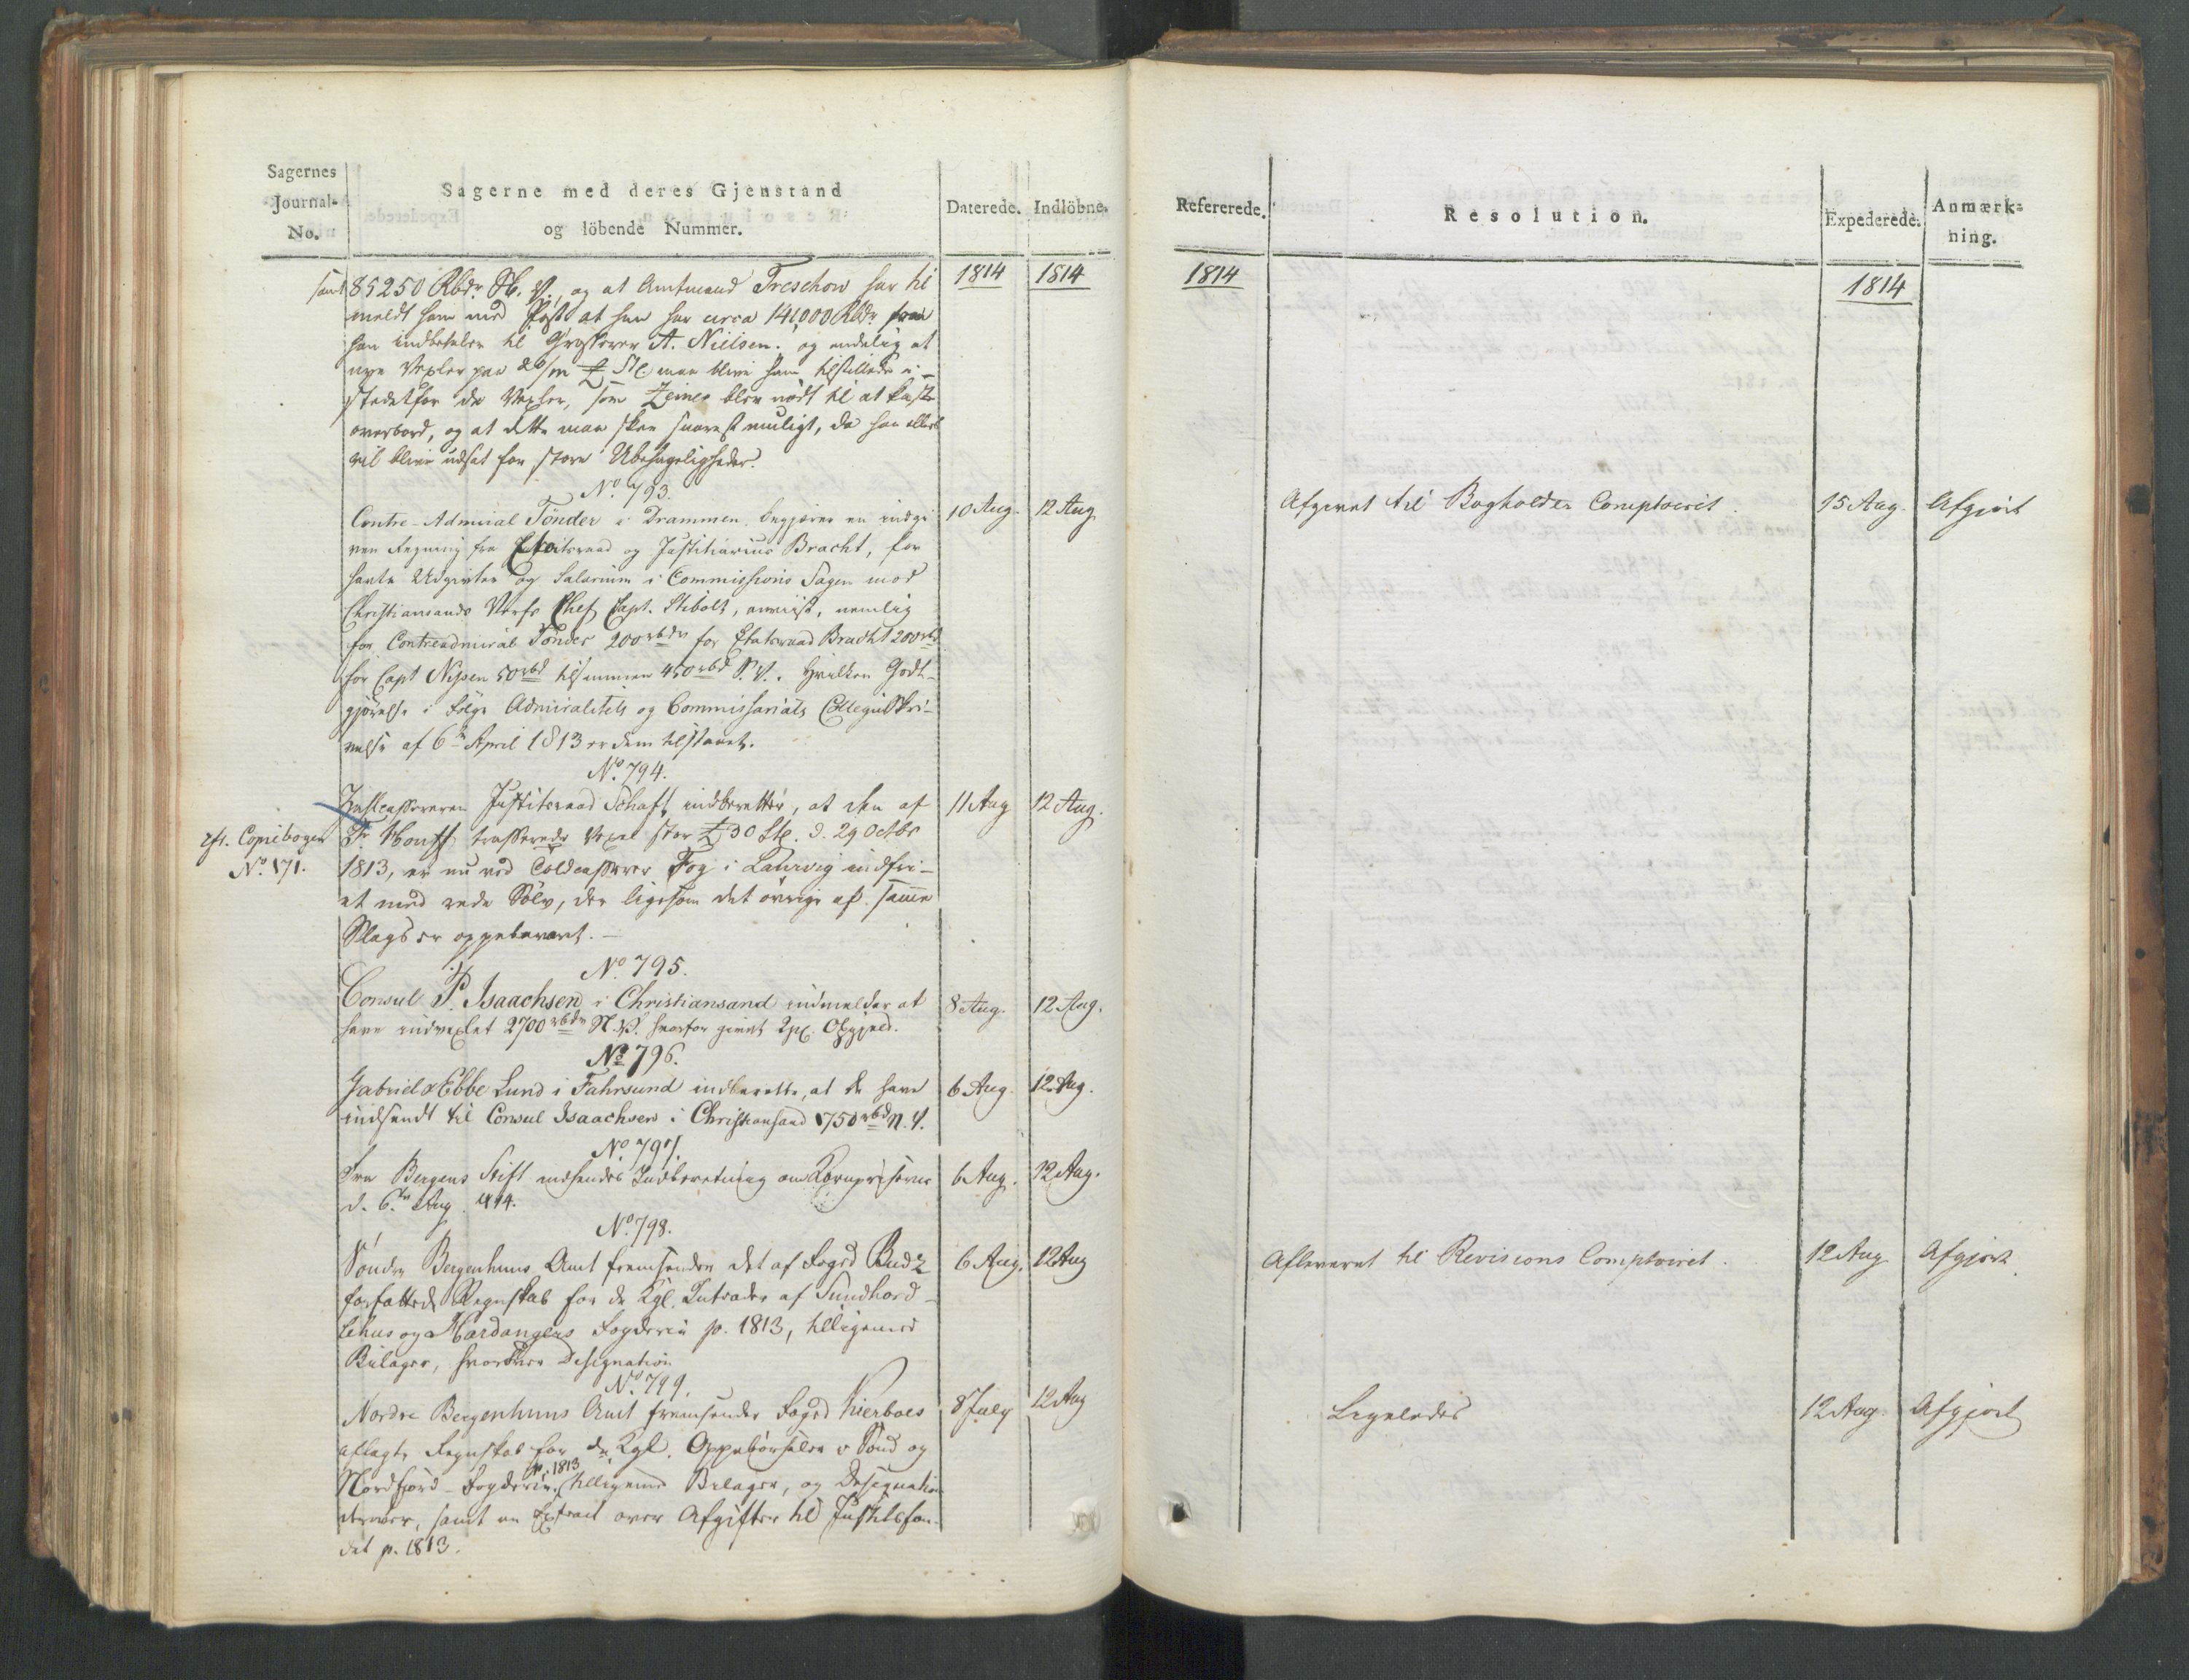 Sagernes
Journal-
No.
Sagerne med deres Gjenstand
og löbende Nummer.
Daterede.
Indlöbne.
Refererede.
Resolution.
Expederede.
Anmærk-
ning.
1814
1814
1814
1814
samt 85250 Rbdr. N. V., og at Amtmand Treschow har til
meldt ham med Post at han har circa 141,000 Rbdr som
han indbetaler til Grosserer A. Nielsen. og endelig at
nye Vexler paa 20/m £ St. maa blive ham tilstillede i-
stedetfor de Vexler, som Zeiner blev nödt til at kaste
overbord, og at dette maa skee snarest muligt, da han ellers
vil blive udsat for store Ubehageligheder.
No. 793.
Contre-Admiral Tönder i Drammen, begjærer en indgi
ven Regning fra Etatsraad og Justitiarius Bracht, for
havte Udgivter og Salarium i Commissions Sagen mod
Christiansands Verfs Chef Capt. Stibolt, anviist, nemlig
for Contreadmiral Tönder 200 rbdr for Etatsraad Bracht 200 rbd
for Capt Nissen 50 rbd tilsammen 450 rbd S. V. hvilken Godt-
gjörelse i Fölge Admiralitets og Commissariats Collegii Skri-
velse af 6te April 1813 er dem tilstaaet.
10 Aug.
12 Aug
Afgivet til Bogholder Comptoiret.
15 Aug.
Afgjort
No. 794.
Zahlcasserer Justitsraad Schaft indberetter, at den af
Fr. trasserede Vexel stor £ 30 Stl. d. 29 Octbr
1813, er nu ved Toldcasserer Fog i Laurvig indfri-
et med rede Sölv, der ligesom det övrige af samme
Slags er oppebevaret.
11 Aug
12 Aug.
eft. Copiebogen
No. 171.
No. 795.
Consul P. Isaachsen i Christiansand indmelder at
have indvexlet 2700 rbdr N. V. hvorfor givet 2 pC. Opgjeld.
8 Aug.
12 Aug.
No. 796.
Gabriel & Ebbe Lund i Fahrsund indberette, at de have
indsendt til Consul Isaachsen i Christiansand 1750 rbd N. V.
6 Aug.
12 Aug.
No. 797.
Fra Bergens Stift indsendes Indberetning om Kornpriserne
d. 6te Aug. 1814.
6 Aug.
12 Aug.
No. 798.
Söndre Bergenhuus Amt fremsender det af Fogd Budz
forfattede Regnskab for de Kgl. Intrader af Sundhord-
lehns og Hardangers Fogderie p. 1813, tilligemed
Bilager, hvorover Designation
6 Aug.
12 Aug
Afleveret til Revisions Comptoiret.
12 Aug
Afgjort
No. 799.
Nordre Bergenhuus Amt fremsender Fogd Kierboes
aflagte Regnskab for de Kgl. Oppebörseler i Sönd og
Nordfjord-Fogderie, p. 1813 tilligemed Bilager, og Designation
derover, samt en Extract over Afgifter til Justitsfon-
det p. 1813.
8 July
12 Aug
Ligeledes
12 Aug.
Afgjort